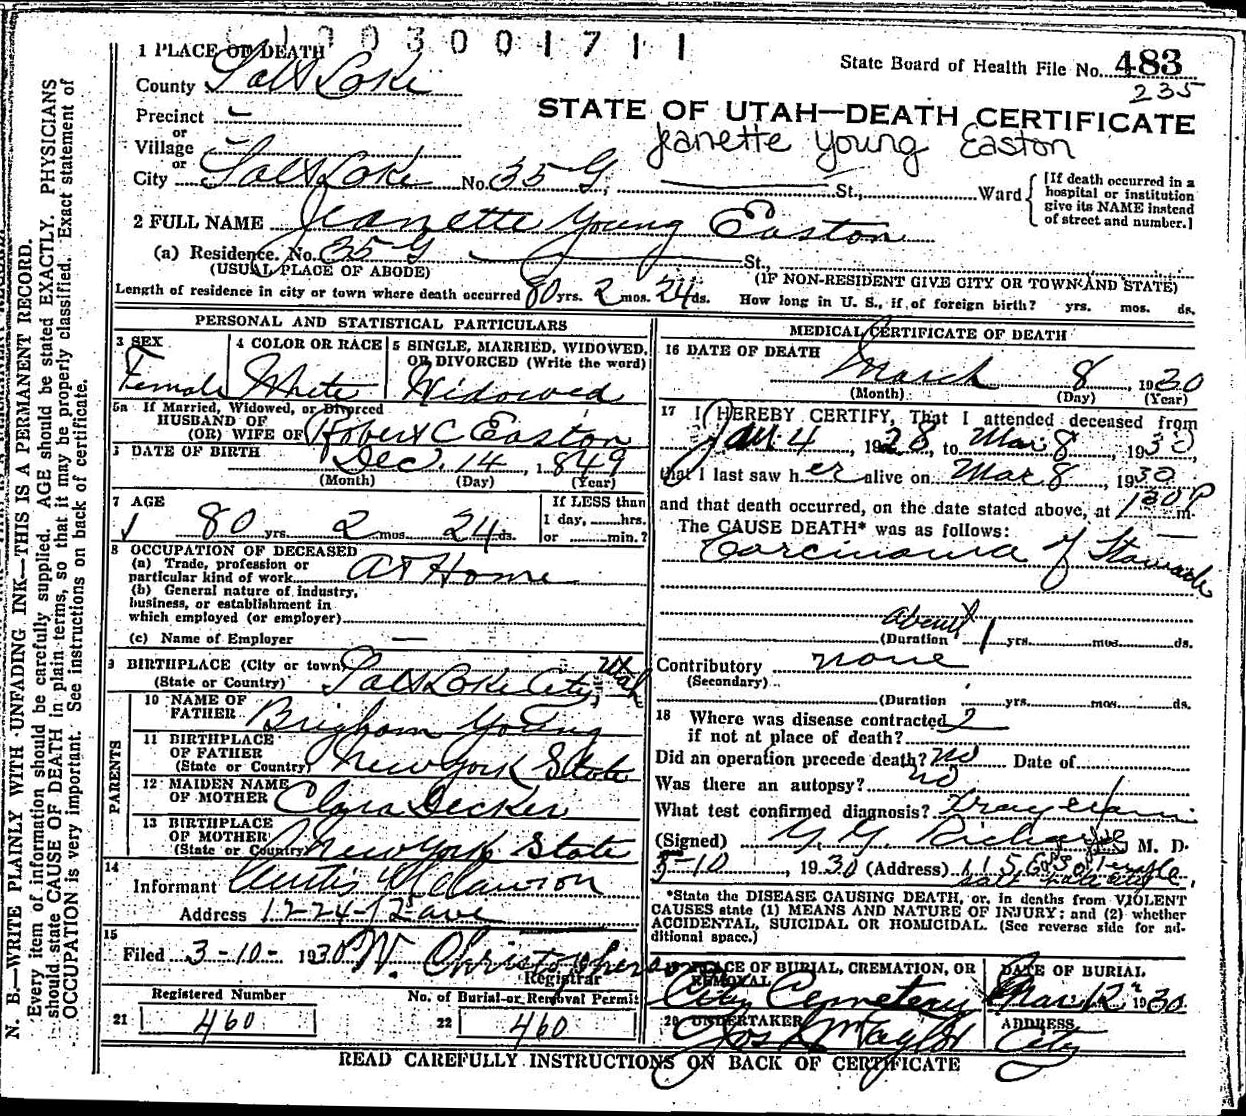 003001711
1 PLACE OF DEATH
State Board of Health File No. 483
235
County Salt Lake
STATE OF UTAH—DEATH CERTIFICATE
Precinct
or
Village
or
Jeanette Young Easton
City Salt Lake No. 35 G, St., Ward
[If death occurred in a
hospital or institution
give its NAME instead
of street and number.]
2 FULL NAME Jeanette Young Easton
(a) Residence. No. 35 G St.,
(USUAL PLACE OF ABODE) (IF NON-RESIDENT GIVE CITY OR TOWN AND STATE)
Length of residence in city or town where death occurred 80 yrs. 2 mos. 24 ds. How long in U. S., if of foreign birth? yrs. mos. ds.
PERSONAL AND STATISTICAL PARTICULARS
3 SEX
Female
4 COLOR OR RACE
White
5 SINGLE, MARRIED, WIDOWED,
OR DIVORCED (Write the word)
Widowed
5a If Married, Widowed, or Divorced
HUSBAND OF
(OR) WIFE OF Robert C Easton
DATE OF BIRTH Dec. 14, 1849
(Month) (Day) (Year)
7 AGE
80 yrs. 2 mos. 24 ds.
If LESS than
1 day, hrs.
or min.?
8 OCCUPATION OF DECEASED
(a) Trade, profession or
particular kind of work At Home
(b) General nature of industry,
business, or establishment in
which employed (or employer)
(c) Name of Employer —
9 BIRTHPLACE (City or town)
(State or Country) Salt Lake City, Utah
PARENTS
10 NAME OF
FATHER Brigham Young
11 BIRTHPLACE
OF FATHER
(State or Country) New York State
12 MAIDEN NAME
OF MOTHER Clara Decker
13 BIRTHPLACE
OF MOTHER
(State or Country) New York State
14
Informant Curtis Clawson
Address 1224-12 ave
15
Filed 3-10- 1930 W. Christopherson
Registrar
Registered Number
21 460
No. of Burial or Removal Permit
22 460
MEDICAL CERTIFICATE OF DEATH
16 DATE OF DEATH
March 8, 1930
(Month) (Day) (Year)
17 I HEREBY CERTIFY, That I attended deceased from
Jan. 4, 1928, to Mar 8, 1930,
that I last saw her alive on Mar 8, 1930
and that death occurred, on the date stated above, at 130 P m.
The CAUSE DEATH* was as follows:
Carcinoma of Stomach
about
(Duration 1 yrs. mos. ds.
Contributory none
(Secondary)
(Duration yrs. mos. ds.
18 Where was disease contracted ?
if not at place of death?
Did an operation precede death? no Date of
Was there an autopsy? no
What test confirmed diagnosis? Xray exam
(Signed) G. G. Richards M. D.
3-10, 1930 (Address) 1156 Temple,
*State the DISEASE CAUSING DEATH, or, in deaths from VIOLENT
CAUSES state (1) MEANS AND NATURE OF INJURY; and (2) whether
ACCIDENTAL, SUICIDAL OR HOMICIDAL. (See reverse side for ad-
ditional space.)
19 PLACE OF BURIAL, CREMATION, OR
REMOVAL
City Cemetery
DATE OF BURIAL
Mar. 12 1930
20 UNDERTAKER
Jos Wm Taylor
ADDRESS
City
READ CAREFULLY INSTRUCTIONS ON BACK OF CERTIFICATE
N. B.—WRITE PLAINLY WITH UNFADING INK—THIS IS A PERMANENT RECORD.
Every item of information should be carefully supplied. AGE should be stated EXACTLY. PHYSICIANS
should state CAUSE OF DEATH in plain terms, so that it may be properly classified. Exact statement of
OCCUPATION is very important. See instructions on back of certificate.